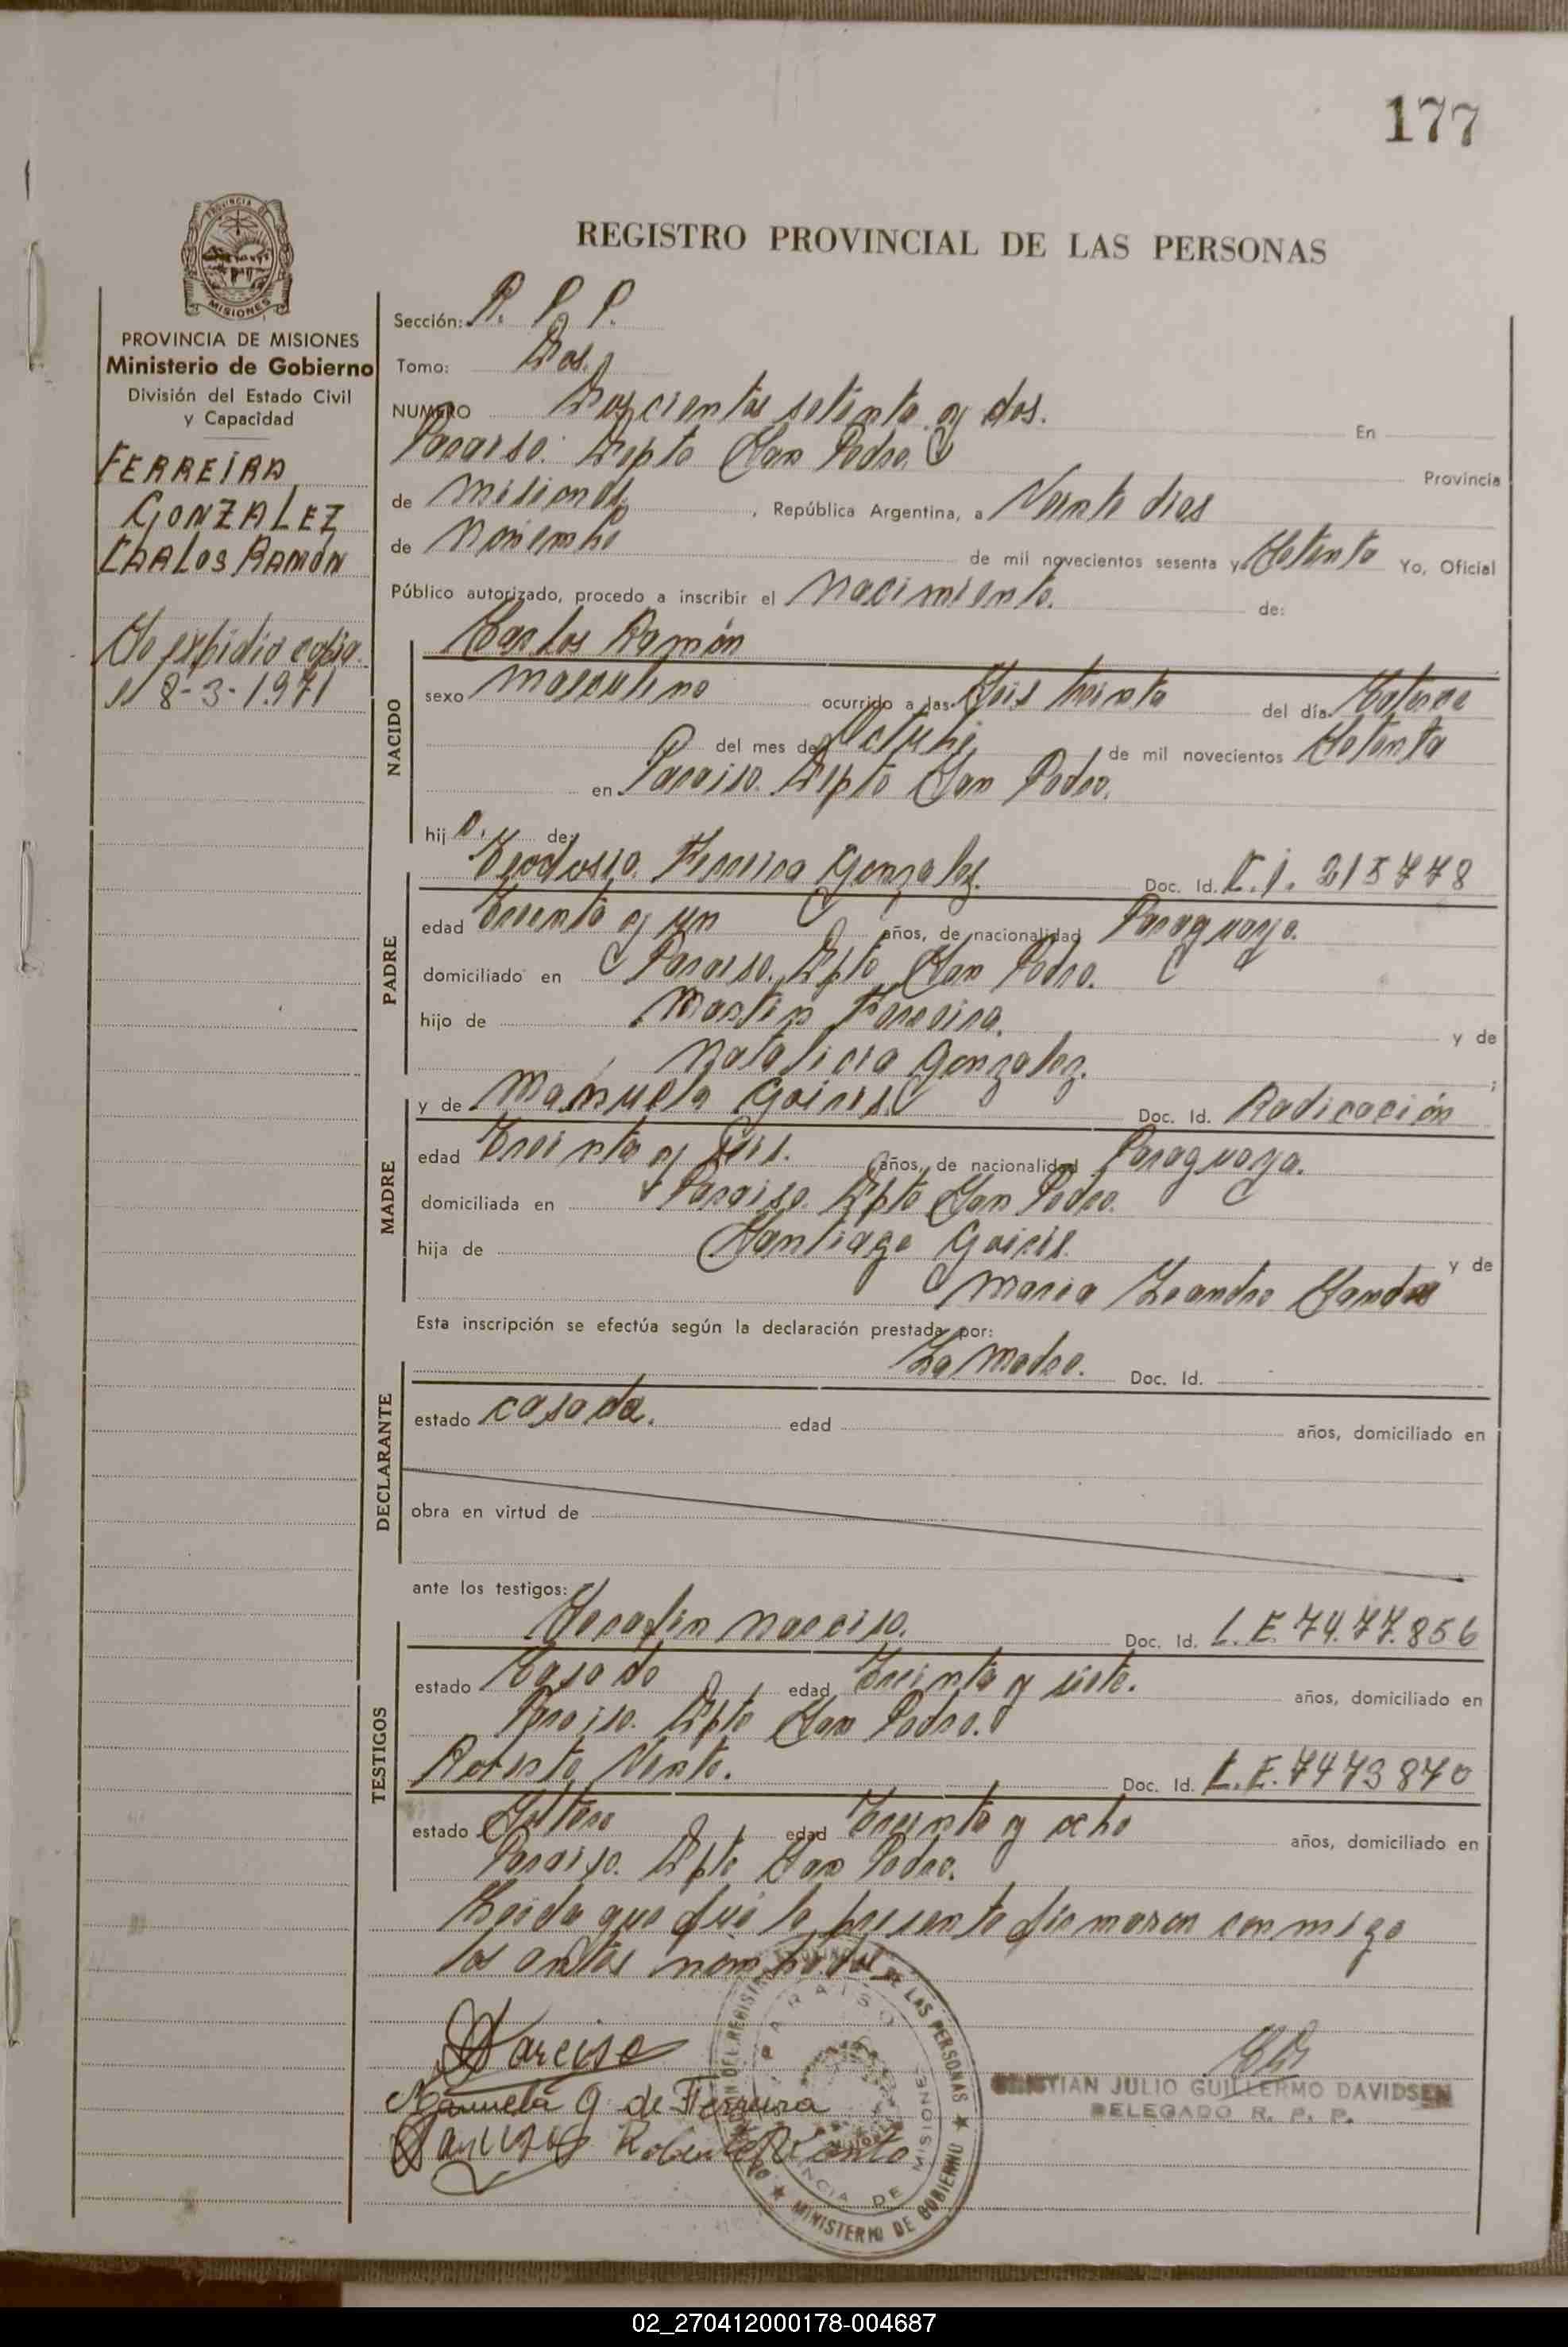 177
PROVINCIA DE
MISIONES
REGISTRO PROVINCIAL DE LAS PERSONAS
PROVINCIA DE MISIONES
Ministerio de Gobierno
División del Estado Civil
y Capacidad
FERREIRA
GONZALEZ
CARLOS RAMÓN
Se expidió copia.
el 8-3-1.971
Sección: R. P. P.
Tomo: Dos.
NUMERO Doscientos setenta y dos. En
Paraiso. Depto San Pedro. Provincia
de Misiones, República Argentina, a Veinte dias
de Noviembre de mil novecientos sesenta y Setenta Yo, Oficial
Público autorizado, procedo a inscribir el Nacimiento. de:
NACIDO
Carlos Ramón
sexo Masculino ocurrido a las Seis treinta del día Catorce
del mes de Octubre, de mil novecientos Setenta
en Paraiso. Depto San Pedro.
hij o. de:
PADRE
Teodosio Ferreira Gonzalez. Doc. Id. C.I. 215778
edad Treinta y un años, de nacionalidad Paraguayo.
domiciliado en Paraiso. Dpto San Pedro.
hijo de Martin Ferreira. y de
Natalicia Gonzalez. ;
MADRE
y de Manuela Goiris. Doc. Id. Radicación
edad Treinta y Seis. años, de nacionalidad Paraguaya.
domiciliada en Paraiso. Dpto San Pedro.
hija de Santiago Goiris. y de
Maria Leandra
Esta inscripción se efectúa según la declaración prestada por:
DECLARANTE
La Madre. Doc. Id.
estado casada. edad años, domiciliado en
obra en virtud de
ante los testigos:
TESTIGOS
Serafin Narciso. Doc. Id. L.E. 74.77.856
estado Casado edad Treinta y siete. años, domiciliado en
Paraiso. Dpto San Pedro.
Roberto Vento. Doc. Id. L.E. 7473870
estado Soltero edad Treinta y ocho años, domiciliado en
Paraiso. Dpto San Pedro.
Leida que fué la presente firmaron conmigo
los antes nombrados
Narciso
Manuela G. de Ferreira
Roberto Vento
DEL REGISTRO PROVINCIAL DE LAS PERSONAS
MINISTERIO DE GOBIERNO
PARAISO
PROVINCIA DE MISIONES
CRISTIAN JULIO GUILLERMO DAVIDSEN
DELEGADO R. P. P.
02_270412000178-004687